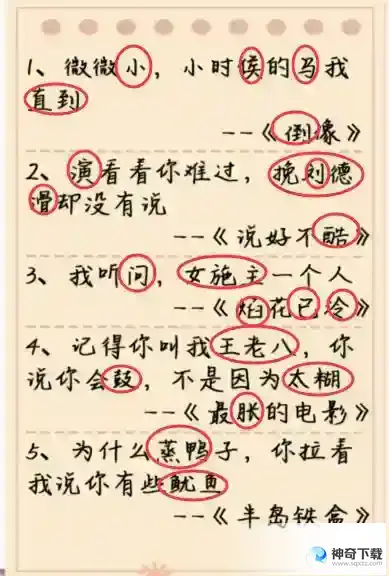 1、微微小，小时侯的马我
直到
--《倒像》
2、演看看你难过，挽刘德
滑却没有说
--《说好不酷》
3、我听问，女施主一个人
--《焰花已冷》
4、记得你叫我王老八，你
说你会鼓，不是因为太糊
--《最胀的电影》
5、为什么蒸鸭子，你拉看
我说你有些鱿鱼
--《半岛铁盒》
神奇下载
www.sqxzz.com